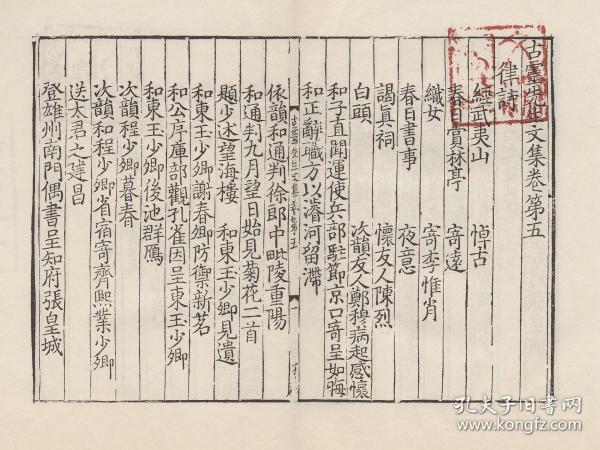 古靈先生文集卷第五
律詩
經武夷山 悼古
春日賞林亭 寄遠
織女 寄李惟肖
春日書事 夜意
謁真祠 懷友人陳烈
白頭 次韻友人鄭穆病起感懷
和子直聞運使兵部駐節京口寄呈如晦
和正辭職方以濬河留滯
依韻和通判徐郎中毗陵重陽
和通判九月望日始見菊花二首
題少述望海樓 和東玉少卿見遺
和東玉少卿謝春卿防禦新茗
和公序庫部觀孔雀因呈東玉少卿
和東玉少卿後池群鴈
次韻程少卿暮春
次韻和程少卿省宿寄齊熙業少卿
送太君之建昌
登雄州南門偶書呈知府張皇城
孔夫子旧书网
book.kongfz.com